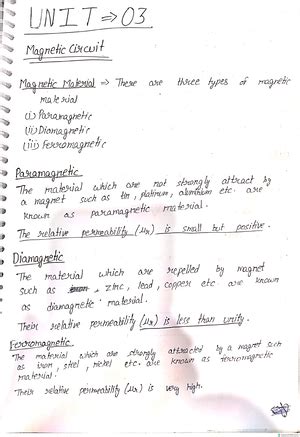 UNIT ⇒ 03
Magnetic Circuit
Magnetic Material ⇒ There are three types of magnetic
material
(i) Paramagnetic
(ii) Diamagnetic
(iii) Ferromagnetic
Paramagnetic
The material which are not strongly attract by
a magnet such as tin, platinum, aluminium etc. are
known as paramagnetic material.
The relative permeability (μr) is small but positive.
Diamagnetic
The material which are repelled by magnet
such as zinc, lead, copper etc are known
as diamagnetic material.
Their relative permeability (μr) is less than unity.
Ferromagnetic
The material which are strongly attracted by a magnet such
as iron, steel, nickel etc. are known as ferromagnetic
material.
Their relative permeability (μr) is very high.